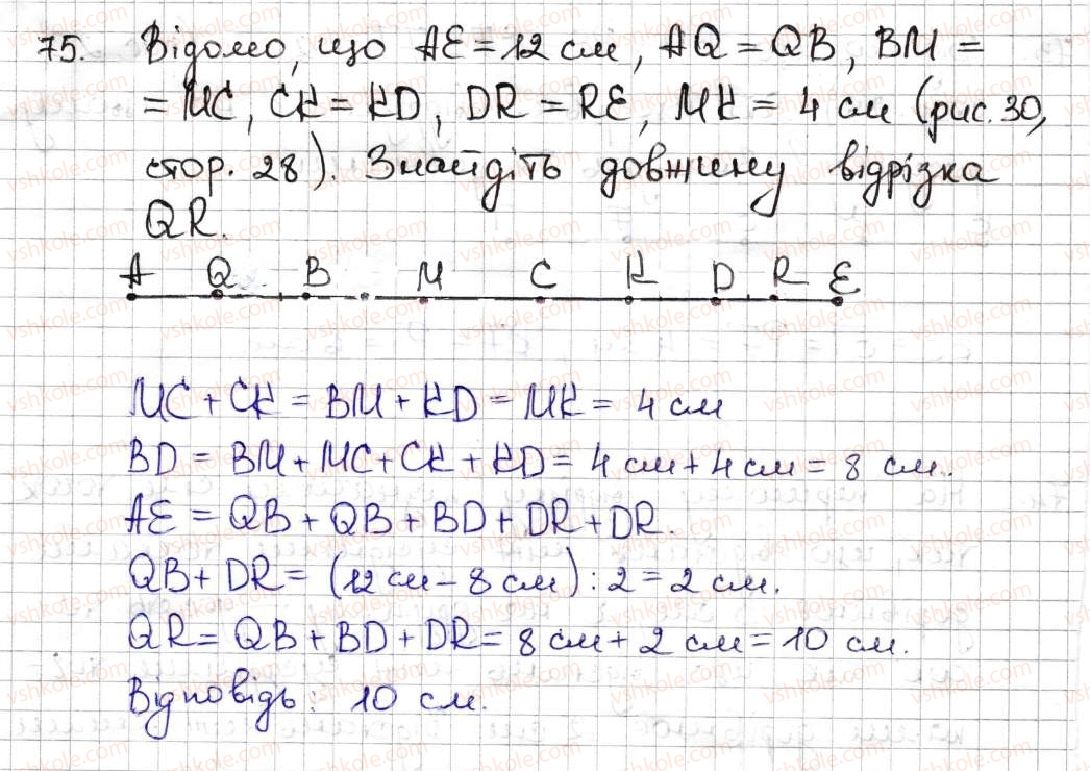 75. Відомо, що AE = 12 см, AQ = QB, BM =
= MC, CK = KD, DR = RE, MK = 4 см (рис. 30,
стор. 28). Знайдіть довжину відрізка
QR.
A Q B M C K D R E
MC + CK = BM + KD = MK = 4 см
BD = BM + MC + CK + KD = 4 см + 4 см = 8 см.
AE = QB + QB + BD + DR + DR.
QB + DR = (12 см - 8 см) : 2 = 2 см.
QR = QB + BD + DR = 8 см + 2 см = 10 см.
Відповідь: 10 см.
vshkole.com